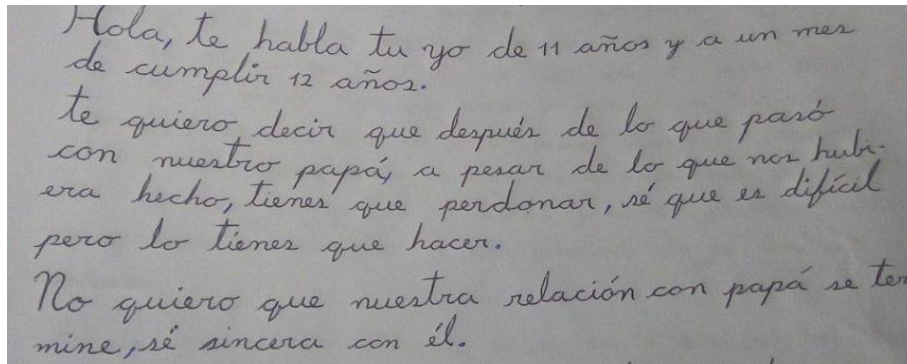 Hola, te habla tu yo de 11 años y a un mes
de cumplir 12 años.
te quiero decir que después de lo que pasó
con nuestro papá, a pesar de lo que nos hubi-
era hecho, tienes que perdonar, sé que es difícil
pero lo tienes que hacer.
No quiero que nuestra relación con papá se ter
mine, sé sincera con él.